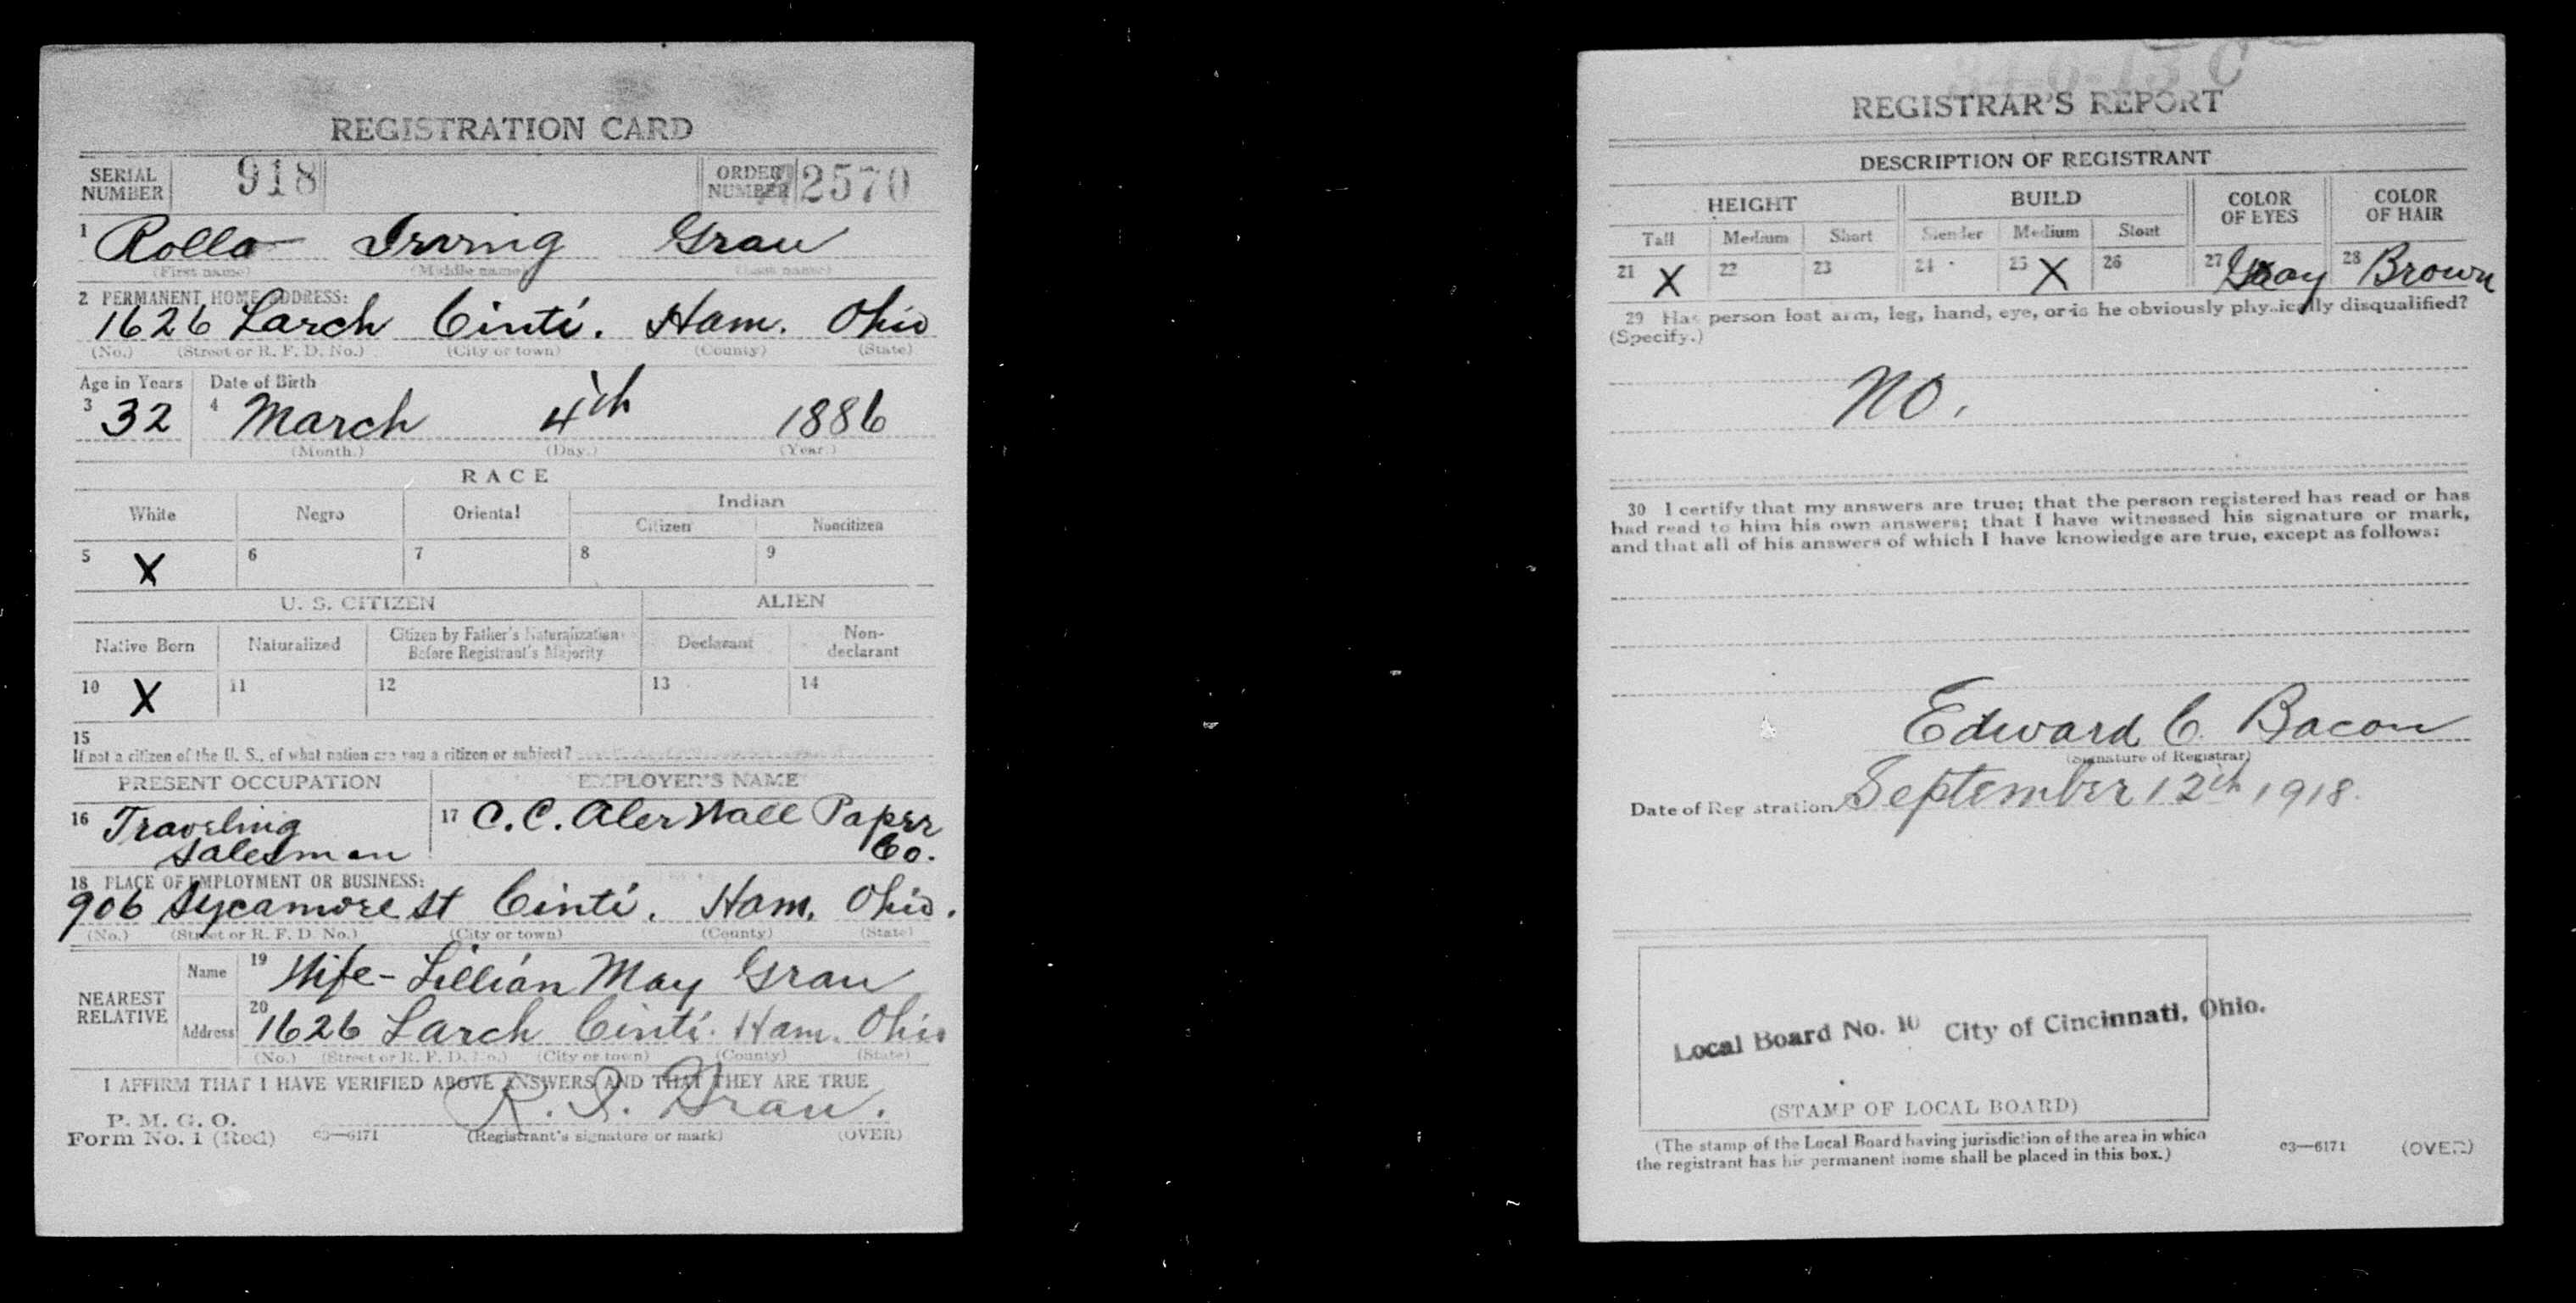 REGISTRATION CARD
SERIAL NUMBER 918 ORDER NUMBER 2570
1 Rollo Irving Grau
(First name) (Middle name) (Last name)
2 PERMANENT HOME ADDRESS:
1626 Larch Cinti. Ham. Ohio
(No.) (Street or R. F. D. No.) (City or town) (County) (State)
Age in Years Date of Birth
3 32 4 March 4th 1886
(Month.) (Day.) (Year.)
RACE
White Negro Oriental Indian
Citizen Noncitizen
5 X 6 7 8 9
U. S. CITIZEN ALIEN
Native Born Naturalized Citizen by Father's Naturalization Before Registrant's Majority Declarant Non-declarant
10 X 11 12 13 14
15
If not a citizen of the U. S., of what nation are you a citizen or subject?
PRESENT OCCUPATION EMPLOYER'S NAME
16 Traveling 17 C. C. Aler Wall Paper
Salesman Co.
18 PLACE OF EMPLOYMENT OR BUSINESS:
906 Sycamore St Cinti. Ham. Ohio.
(No.) (Street or R. F. D. No.) (City or town) (County) (State)
NEAREST RELATIVE Name 19 Wife - Lillian May Grau
Address 20 1626 Larch Cinti. Ham. Ohio
(No.) (Street or R. F. D. No.) (City or town) (County) (State)
I AFFIRM THAT I HAVE VERIFIED ABOVE ANSWERS AND THAT THEY ARE TRUE
P. M. G. O. R. I. Grau.
Form No. 1 (Red) 03—6171 (Registrant's signature or mark) (OVER)
C
REGISTRAR'S REPORT
DESCRIPTION OF REGISTRANT
HEIGHT BUILD COLOR OF EYES COLOR OF HAIR
Tall Medium Short Slender Medium Stout
21 X 22 23 24 25 X 26 27 Gray 28 Brown
29 Has person lost arm, leg, hand, eye, or is he obviously physically disqualified?
(Specify.)
NO.
30 I certify that my answers are true; that the person registered has read or has
had read to him his own answers; that I have witnessed his signature or mark,
and that all of his answers of which I have knowledge are true, except as follows:
Edward C. Bacon
(Signature of Registrar)
Date of Registration September 12th 1918.
Local Board No. 10 City of Cincinnati, Ohio.
(STAMP OF LOCAL BOARD)
(The stamp of the Local Board having jurisdiction of the area in which
the registrant has his permanent home shall be placed in this box.)
03—6171 (OVER)